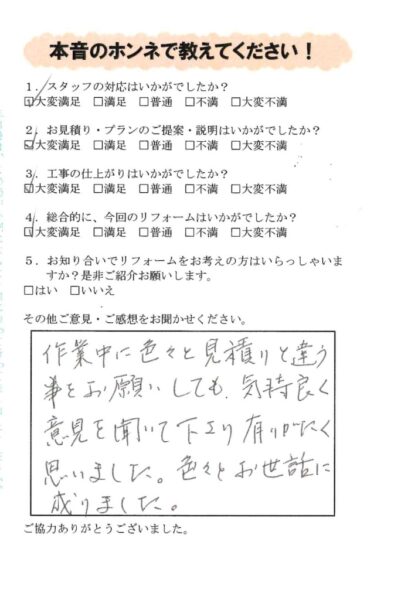 本音のホンネで教えてください！
１．スタッフの対応はいかがでしたか？
☑大変満足　□満足　□普通　□不満　□大変不満
２．お見積り・プランのご提案・説明はいかがでしたか？
☑大変満足　□満足　□普通　□不満　□大変不満
３．工事の仕上がりはいかがでしたか？
☑大変満足　□満足　□普通　□不満　□大変不満
４．総合的に、今回のリフォームはいかがでしたか？
☑大変満足　□満足　□普通　□不満　□大変不満
５．お知り合いでリフォームをお考えの方はいらっしゃいま
すか？是非ご紹介お願いします。
□はい　□いいえ
その他ご意見・ご感想をお聞かせください。
作業中に色々と見積りと違う
事をお願いしても、気持良く
意見を聞いて下さり有りがたく
思いました。色々とお世話に
成りました。
ご協力ありがとうございました。